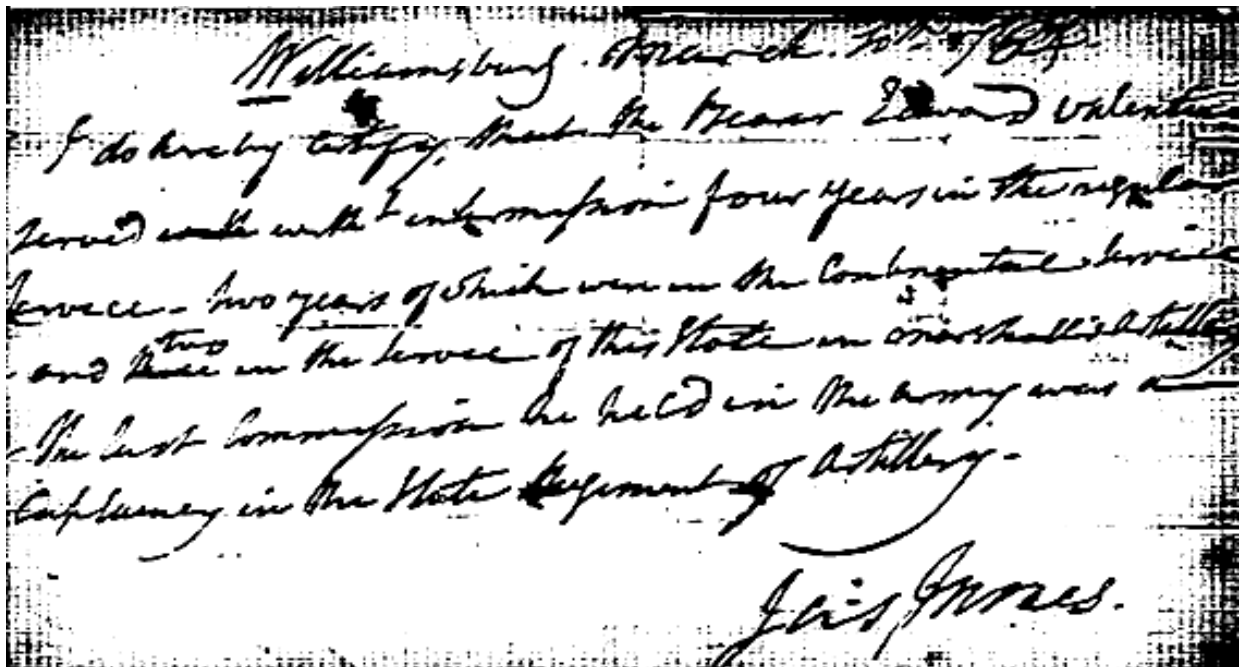 Williamsburg. March. 10th. 1784
I do hereby certify, that the Bearer Edward Valentine
served with witht intermission four years in the regular
service - two years of which were in the Continental Service
and three two in the service of this State in Marshall's Artillery
- The last Commission he held in the army was a
Captaincy in the State Regiment of Artillery. -
Jas Innes.